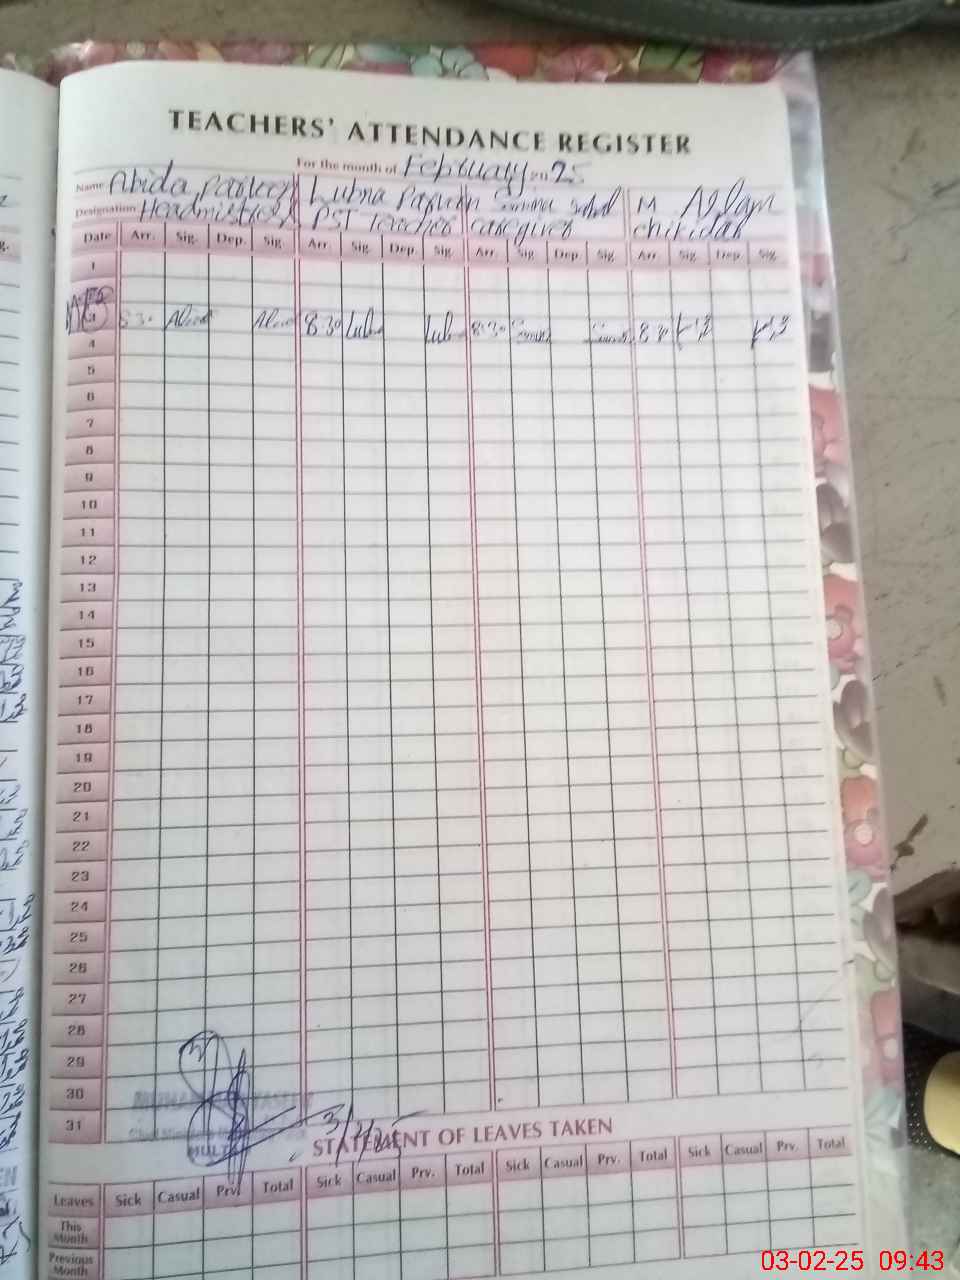 TEACHERS' ATTENDANCE REGISTER
For the month of February 2025
Name Abida Parveen Lubna Parveen M Aslam
Designation Headmistress PST Teacher caregiver chikidar
Date Arr. Sig. Dep. Sig Arr. Sig. Dep. Sig. Arr. Sig. Dep. Sig. Arr. Sig. Dep. Sig.
1
3 8:30 8:30 Lub Lub 8:30
4
5
6
7
8
9
10
11
12
13
14
15
16
17
18
19
20
21
22
23
24
25
26
27
28
29
30
31
3/2/25
STATEMENT OF LEAVES TAKEN
Leaves Sick Casual Prv. Total Sick Casual Prv. Total Sick Casual Prv. Total Sick Casual Prv. Total
This Month
Previous Month
03-02-25 09:43